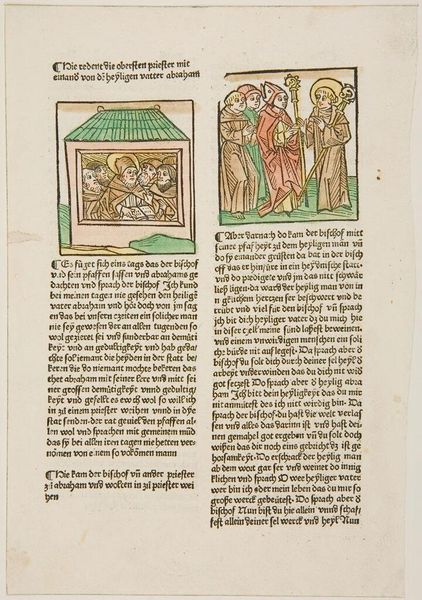 ¶Hie redent die obersten priester mit
einand von dē heyligen vatter abraham
¶Es füget sich eins tags das der bischof
vnd sein pfaffen saffen vnd abrahams ge
dachten vnd sprach der bischof Ich kund
bei meinen tagen nie gesehen den heiligē
vater abraham vnd hőr doch von im sa
gen das bei vnsern zeiten ein solicher man
nie sey geweſen der an allen tugenden so
wol gezieret sei vnd sunderbar an demüti
keyt vnd an gedultigkeyt vnd hab gedā
chte sol iemant die heyden in der statt be
keren die do niemant mochte bekeren das
thet abraham mit seiner lere vnd mit sei
ner grossen demütigkeyt vnnd gedultig
keyt vnd gefellt es euch wol so will ich
in zů einem priester weihen vnnd in dye
stat senden der rat geuiel den pfaffen al
len wol vnd sprachen mit gemeinem můd
das sy bei allen iren tagen nie hetten ver
nomen von einem so volkomen mann
¶Hie kam der bischof vñ ander priester
zů abraham vnd wolten in zů priester wei
hen
¶Aber darnach do kam der bischof mitt
seiner pfafheyt zů dem heyligen man vñ
do sy einander grüsten da bat in der bisch
off das er hinfüre in ein heydnische statt
vnd do predigete vnd im das nitt schwāe
ließ ligen da ward der heylig man von in
niklichem hertzen ser beschwert vnd be
trübt vnd viel für den bischof vñ sprach
ich bit dich heyliger vater dz du mich hie
in diser cell meine sünd lassest beweinen
vnd einem vnwirdigen menschen ein soli
che bürde nit auflegest Da sprach aber d
bischof du solt dich durch deiner sel heyl d
arbeyt vnderwinden das du dich nit wid
got setzest Do sprach aber d heylig abra
ham Ich bitt dein heyligkeyt das du mir
nit anmütest des ich nitt wirdig bin Da
sprach der bischof du hast die welt verlas
sen vnd alles das darinn ist vnd hast dei
nen gemahel got ergeben vñ du solt doch
wissen das dir noch eins gebricht dz ist ge
horsamkeyt Do erschrack der heylig man
ab dem wort gar ser vnd weinet do innig
klichen vnd sprach O wee heyliger vater
wer bin ich oder mein leben das du mir so
große werck gebeütest Do sprach aber d
bischof Nun bist du hie allein vnnd schaf
fest allein deiner sel werck vnd heyl Nun